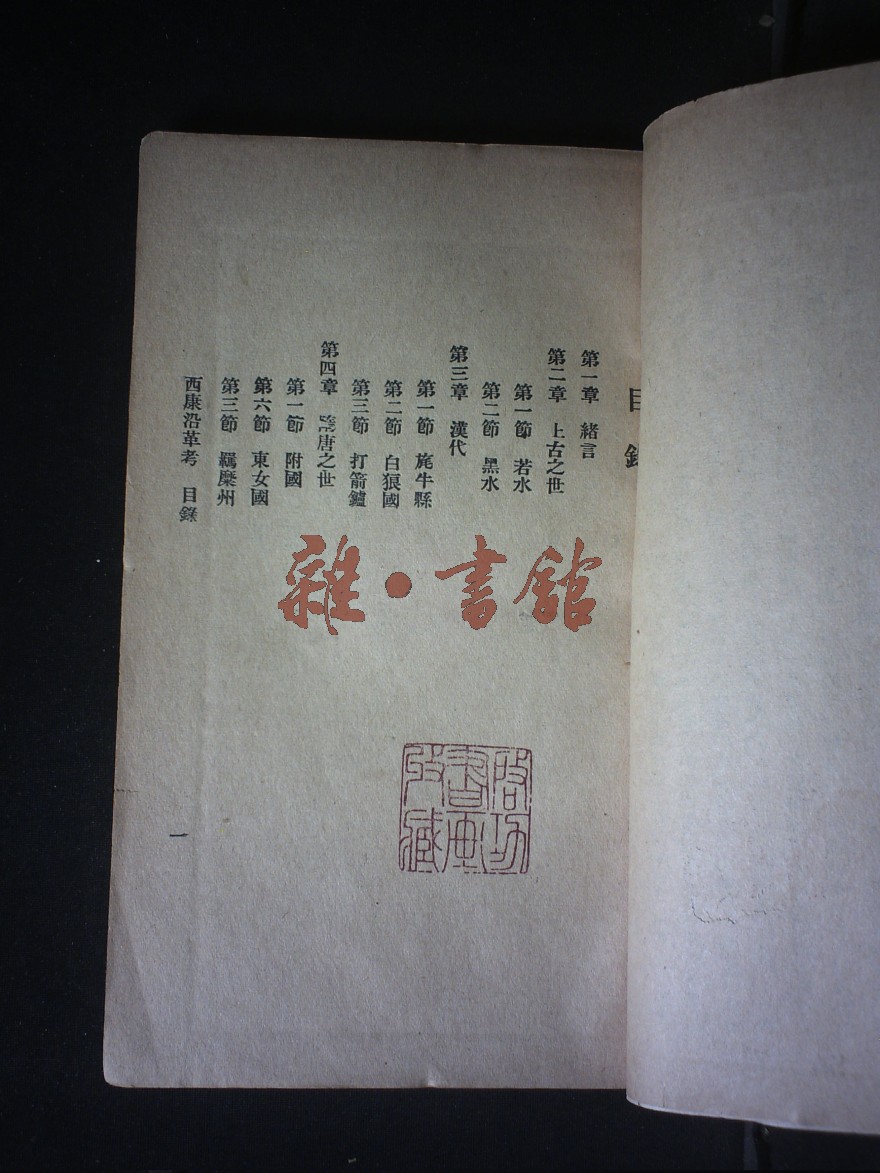 目錄
第一章　緒言
第二章　上古之世
第一節　若水
第二節　黑水
第三章　漢代
第一節　旄牛縣
第二節　白狼國
第三節　打箭鑪
第四章　隋唐之世
第一節　附國
第六節　東女國
第三節　羈縻州
西康沿革考　目錄
一
雜·書館
啓功
書畫
收藏